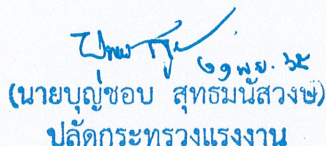 พ.ย. ๖๕
(นายบุญชอบ สุทธมนัสวงษ์)
ปลัดกระทรวงแรงงาน